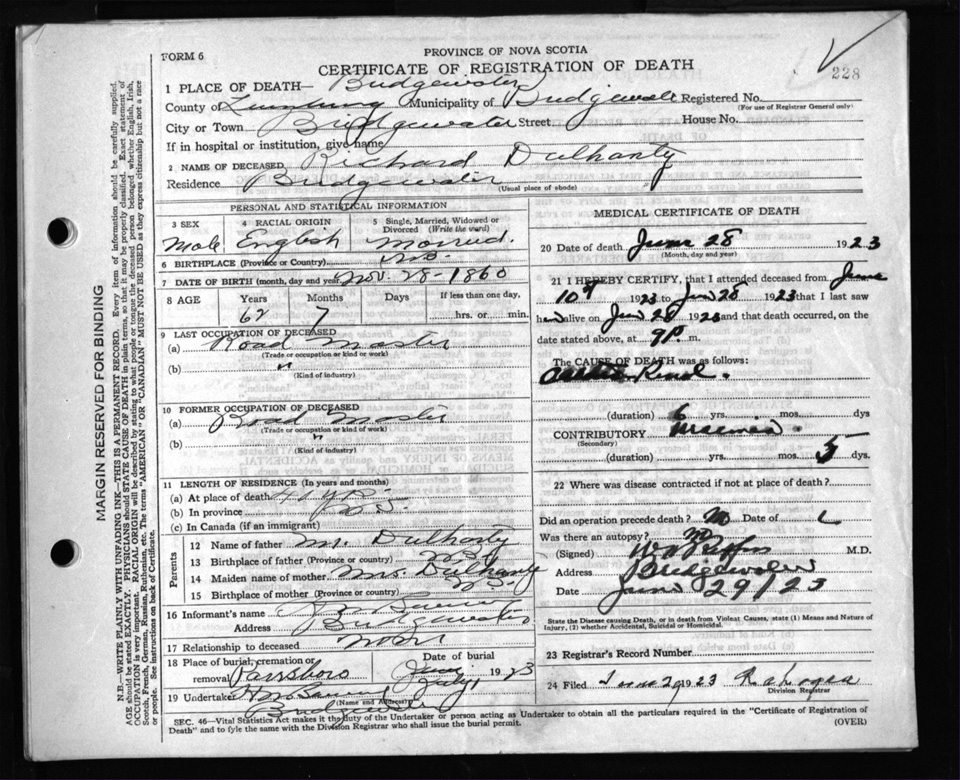 FORM 6
PROVINCE OF NOVA SCOTIA
CERTIFICATE OF REGISTRATION OF DEATH
228
1 PLACE OF DEATH— Bridgewater
County of Lunenburg Municipality of Registered No.
(For use of Registrar General only)
City or Town Bridgewater Street House No.
If in hospital or institution, give name
2 NAME OF DECEASED Richard Dulhanty
Residence Bridgewater
(Usual place of abode)
PERSONAL AND STATISTICAL INFORMATION
3 SEX
Male
4 RACIAL ORIGIN
English
5 Single, Married, Widowed or Divorced (Write the word)
Married.
6 BIRTHPLACE (Province or Country) N.S.
7 DATE OF BIRTH (month, day and year) Nov. 28 - 1860
8 AGE Years Months Days If less than one day,
62 7 hrs. or min.
9 LAST OCCUPATION OF DECEASED
(a) Road Master
(Trade or occupation or kind or work)
(b) "
(Kind of industry)
10 FORMER OCCUPATION OF DECEASED
(a) Road Master
(Trade or occupation or kind of work)
(b) "
(Kind of industry)
11 LENGTH OF RESIDENCE (In years and months)
(a) At place of death
(b) In province
(c) In Canada (if an immigrant)
Parents
12 Name of father Mr. Dulhanty
13 Birthplace of father (Province or country)
14 Maiden name of mother Mrs. Dulhanty
15 Birthplace of mother (Province or country) N.S.
16 Informant's name
Address Bridgewater
17 Relationship to deceased
18 Place of burial, cremation or removal Parrsboro
Date of burial
July 1 1923
19 Undertaker
(Name and Address)
Bridgewater
MEDICAL CERTIFICATE OF DEATH
20 Date of death June 28 1923
(Month, day and year)
21 I HEREBY CERTIFY, that I attended deceased from June
10th 1923 to Jun 28 1923 that I last saw
him alive on Jun 28 1923 and that death occurred, on the
date stated above, at 9 P. m.
The CAUSE OF DEATH was as follows:
(duration) 6 yrs. mos. dys
CONTRIBUTORY Uraemia.
(Secondary)
(duration) yrs. mos. 5 dys.
22 Where was disease contracted if not at place of death?
Did an operation precede death? No Date of
Was there an autopsy? no
(Signed) M.D.
Address Bridgewater
Date June 29/23
State the Disease causing Death, or in death from Violent Causes, state (1) Means and Nature of
Injury, (2) whether Accidental, Suicidal or Homicidal.
23 Registrar's Record Number
24 Filed June 29 1923
Division Registrar
SEC. 46—Vital Statistics Act makes it the duty of the Undertaker or person acting as Undertaker to obtain all the particulars required in the "Certificate of Registration of
Death" and to fyle the same with the Division Registrar who shall issue the burial permit.
(OVER)
MARGIN RESERVED FOR BINDING
N.B.—WRITE PLAINLY WITH UNFADING INK—THIS IS A PERMANENT RECORD. Every item of information should be carefully supplied.
AGE should be stated EXACTLY. PHYSICIANS should STATE CAUSE OF DEATH in plain terms, so that it may be properly classified. Exact statement of
OCCUPATION is very important. RACIAL ORIGIN will be described by stating to what people or tongue the deceased person belonged whether English, Irish,
Scotch, French, German, Russian, Ruthenian, etc. The terms "AMERICAN" or "CANADIAN" MUST NOT BE USED as they express citizenship but not a race
or people. See instructions on back of Certificate.